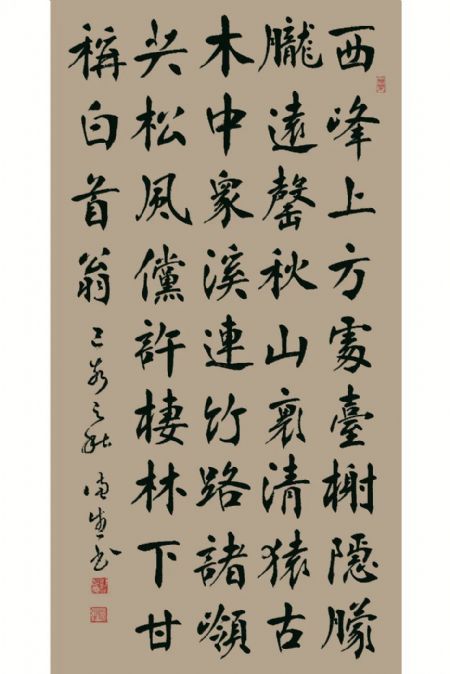 西峰上方處臺榭隱朦
朧遠罄秋山裏清猿古
木中眾溪連竹路諸嶺
共松風儻許棲林下甘
稱白首翁
之秋
書